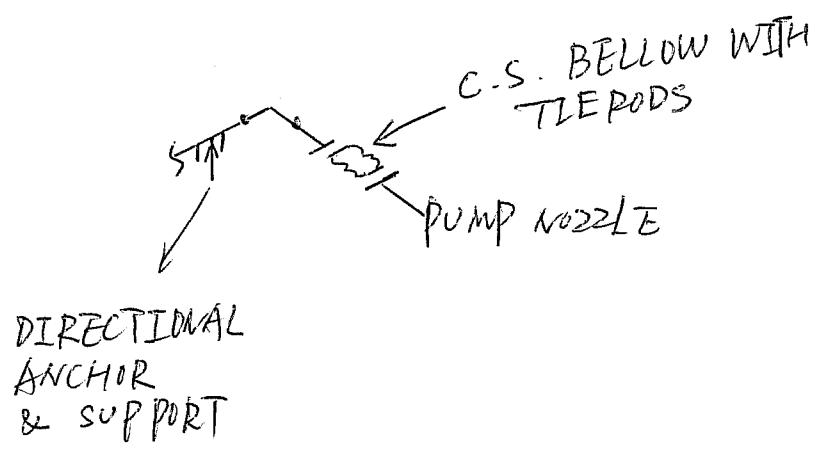 C.S. BELLOW WITH
TIERODS
PUMP NOZZLE
DIRECTIONAL
ANCHOR
& SUPPORT